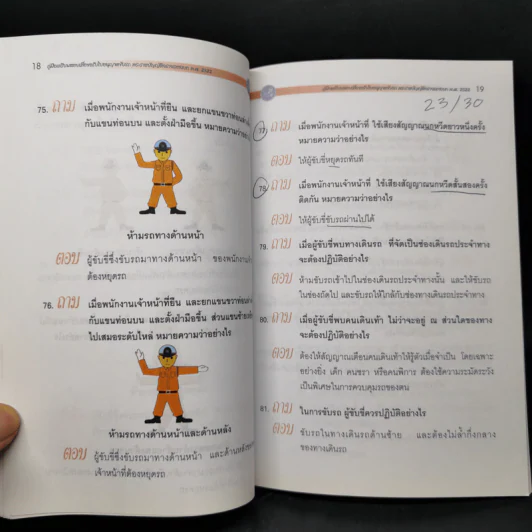 18
75. ถาม เมื่อพนักงานเจ้าหน้าที่ยืน และยกแขนขวาท่อนล่าง
กับแขนท่อนบน และตั้งฝ่ามือขึ้น หมายความว่าอย่างไร
ห้ามรถทางด้านหน้า
ตอบ ผู้ขับขี่ซึ่งขับรถมาทางด้านหน้า ของพนักงาน
ต้องหยุดรถ
76. ถาม เมื่อพนักงานเจ้าหน้าที่ยืน และยกแขนขวาท่อนล่าง
กับแขนท่อนบน และตั้งฝ่ามือขึ้น ส่วนแขนซ้าย
ไปเสมอระดับไหล่ หมายความว่าอย่างไร
ห้ามรถทางด้านหน้าและด้านหลัง
ตอบ ผู้ขับขี่ซึ่งขับรถมาทางด้านหน้า และด้านหลัง
เจ้าหน้าที่ต้องหยุดรถ
19
23/30
77. ถาม เมื่อพนักงานเจ้าหน้าที่ ใช้เสียงสัญญาณนกหวีดยาวหนึ่งครั้ง
หมายความว่าอย่างไร
ตอบ ให้ผู้ขับขี่หยุดรถทันที
78. ถาม เมื่อพนักงานเจ้าหน้าที่ ใช้เสียงสัญญาณนกหวีดสั้นสองครั้ง
ติดกัน หมายความว่าอย่างไร
ตอบ ให้ผู้ขับขี่ขับรถผ่านไปได้
79. ถาม เมื่อผู้ขับขี่พบทางเดินรถ ที่จัดเป็นช่องเดินรถประจำทาง
จะต้องปฏิบัติอย่างไร
ตอบ ห้ามขับรถเข้าไปในช่องเดินรถประจำทางนั้น และให้ขับรถ
ในช่องถัดไป และขับรถให้ใกล้กับช่องทางเดินรถประจำทาง
80. ถาม เมื่อผู้ขับขี่พบคนเดินเท้า ไม่ว่าจะอยู่ ณ ส่วนใดของทาง
จะต้องปฏิบัติอย่างไร
ตอบ ต้องให้สัญญาณเตือนคนเดินเท้าให้รู้ตัวเมื่อจำเป็น โดยเฉพาะ
อย่างยิ่ง เด็ก คนชรา หรือคนพิการ ต้องใช้ความระมัดระวัง
เป็นพิเศษในการควบคุมรถของตน
81. ถาม ในการขับรถ ผู้ขับขี่ควรปฏิบัติอย่างไร
ตอบ ขับรถในทางเดินรถด้านซ้าย และต้องไม่ล้ำกึ่งกลาง
ของทางเดินรถ